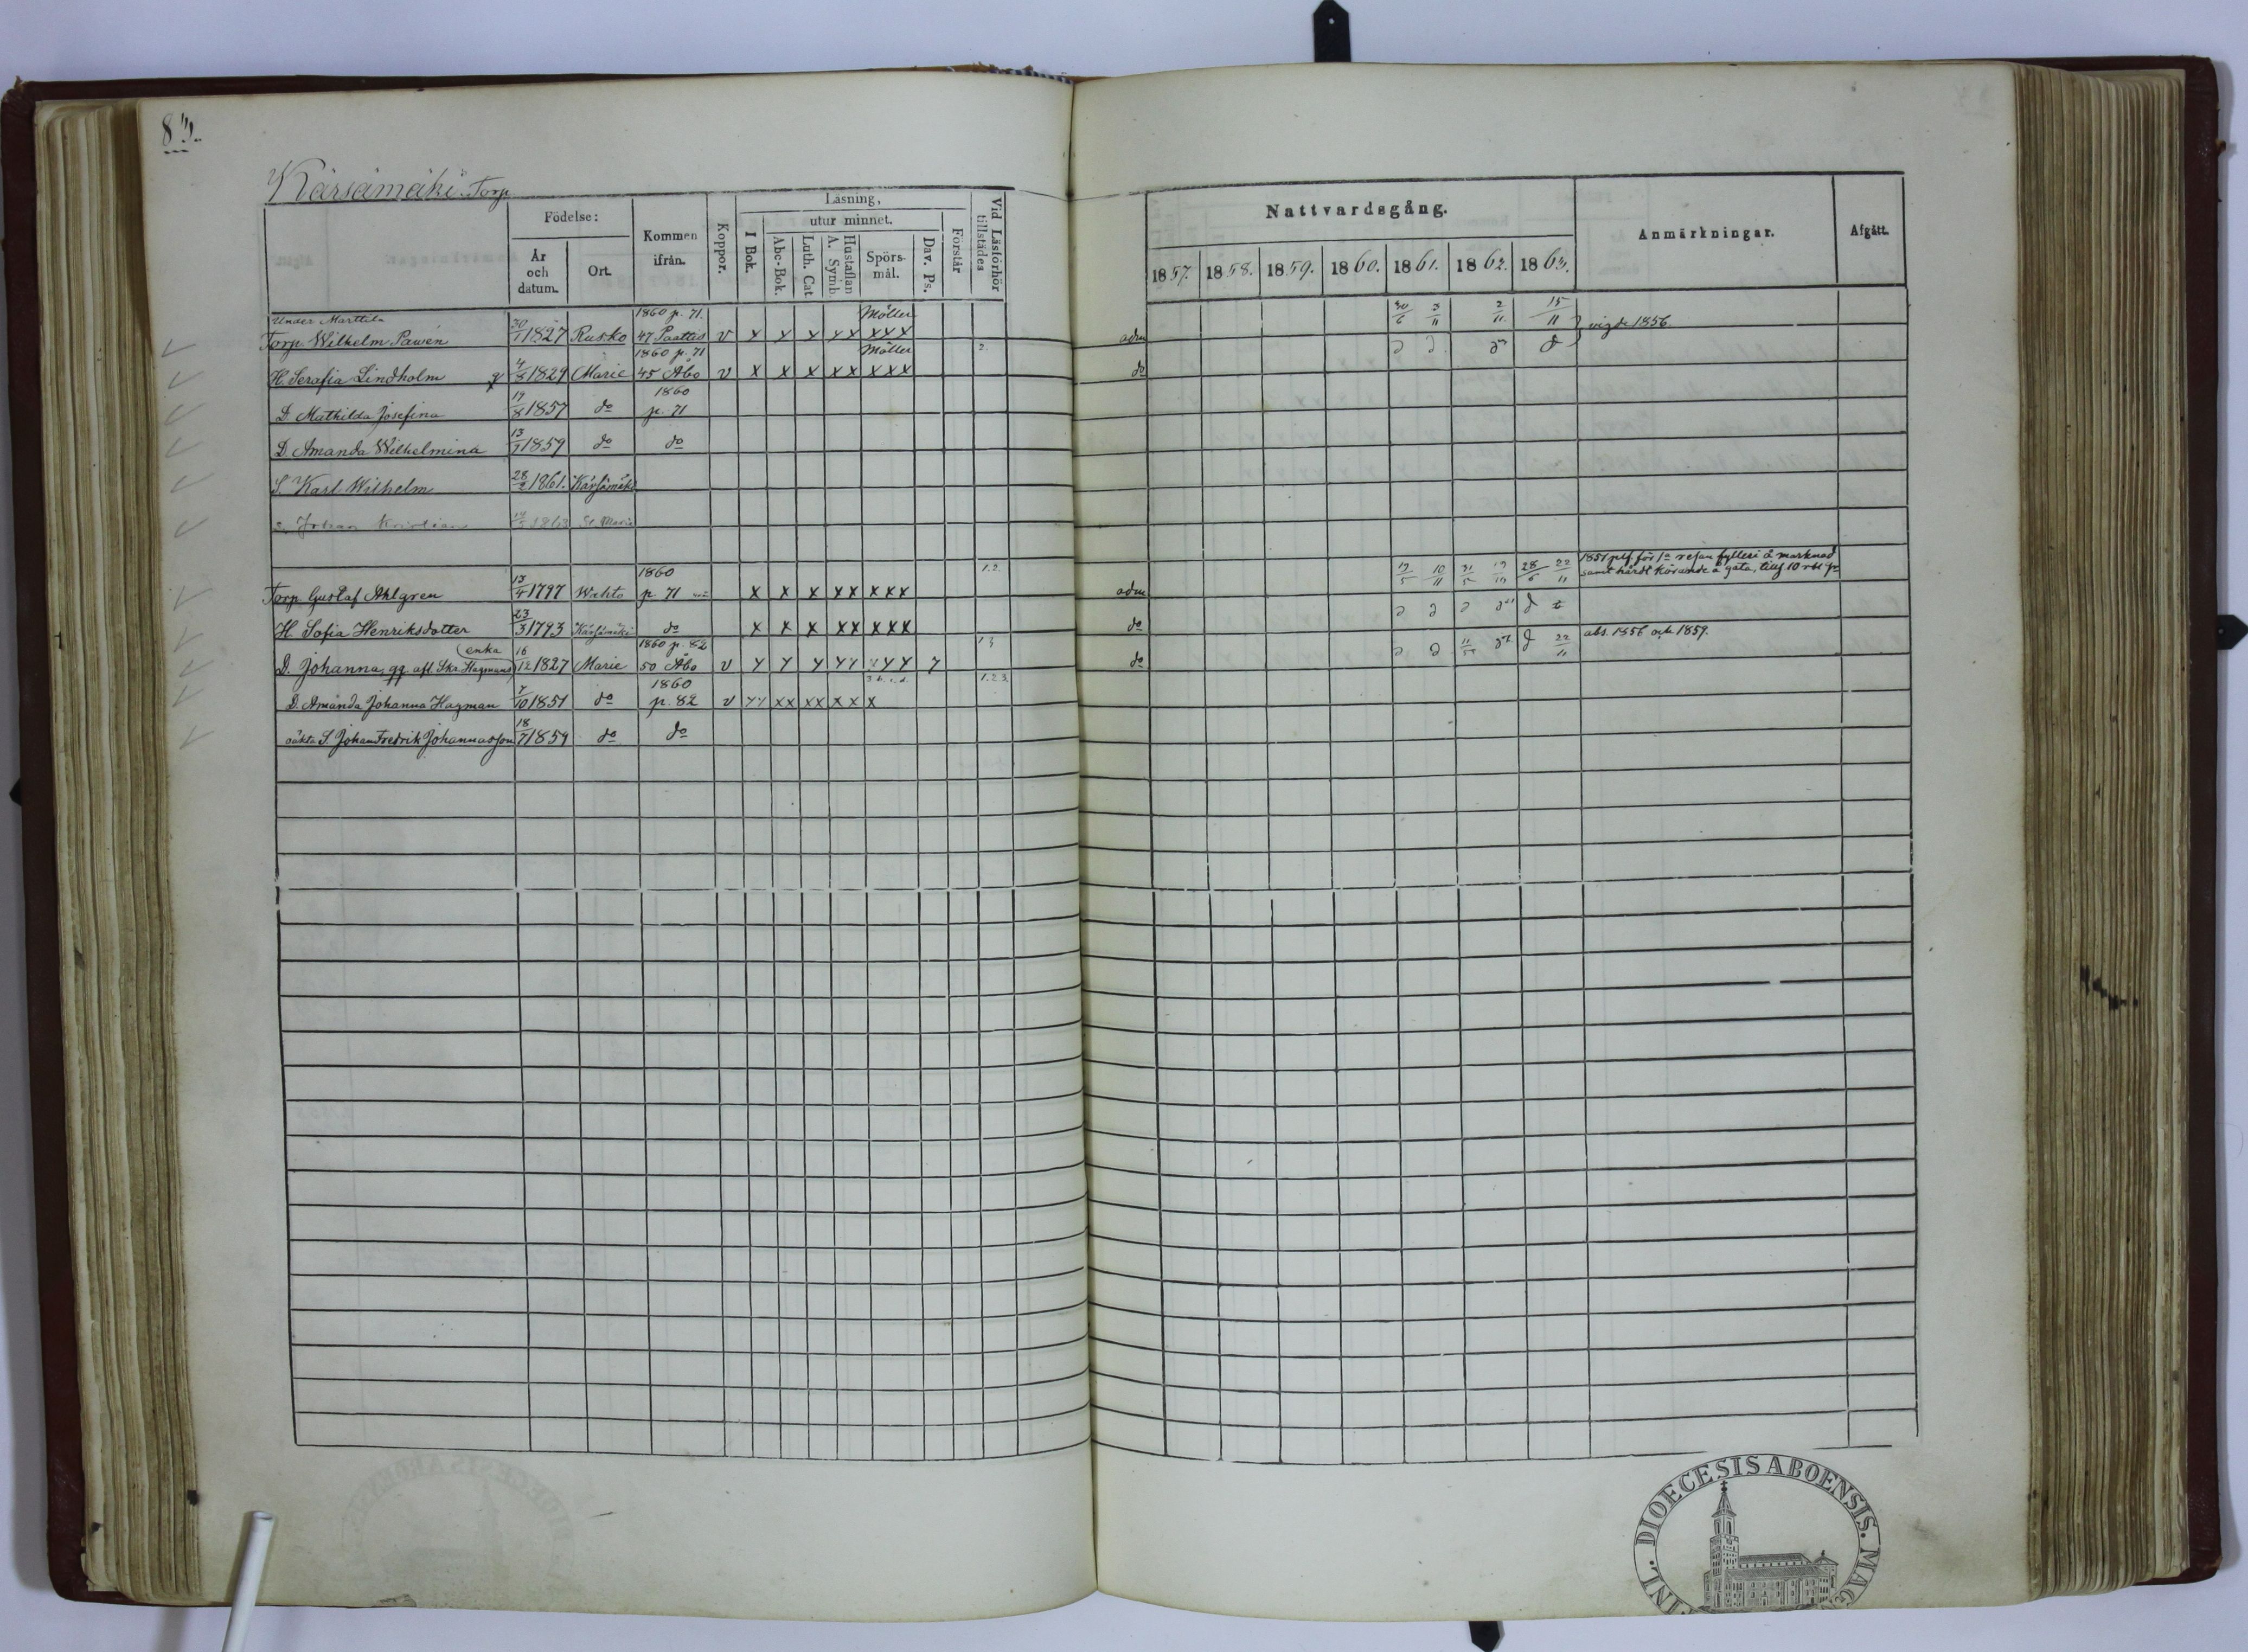 83.
Kärsämäki Torp
Födelse:
År och datum.
Ort.
Kommen ifrån.
Koppor.
Läsning,
I Bok.
utur minnet.
Abc-Bok.
Luth. Cat.
Hustaflan A. Symb.
Spörs-mål.
Dav. Ps.
Förstår
Vid Läsförhör tillstädes
Nattvardsgång.
1857. 1858. 1859. 1860. 1861. 1862. 1863.
Anmärkningar.
Afgått.
Under Marttila
Torp. Wilhelm Pawén 30/1 1827 Rusko 1860 p. 71. 47 Paattis v x x x x x Möller x x x adm 30/6 3/11 2/11 15/11 vigde 1856.
H. Serafia Lindholm 1829 Marie 1860 p. 71 45 Åbo v x x x x x Möller x x x 2. do
D. Mathilda Josefina 19/8 1857 do 1860 p. 71
D. Amanda Wilhelmina 13/7 1859 do do
S. Karl Wilhelm 28/2 1861. Kärsämäki
S. Johan Kristian 1863 St Marie
Torp. Gustaf Ahlgren 13/4 1797 Wahto 1860 p. 71 x x x x x x x x 1.2. adm 19/5 10/11 28/6 22/11 1857 för 1a resan fylleri å marknad
samt hårdt körande å gata,
H. Sofia Henriksdotter 23/3 1793 Kärsämäki do x x x x x x x x do
D. Johanna, gg afl. Skr. Hagmans enka 16/12 1827 Marie 1860 p. 82 50 Åbo v 1.3 do 22/11 abs. 1856 och 1859.
D. Amanda Johanna Hagman 7/10 1851 do 1860 p. 82 v x x x x x x x 1.2.3.
oäkta S. Johan Fredrik Johannasson 18/7 1859 do do
DIOECESIS ABOENSIS. MAG